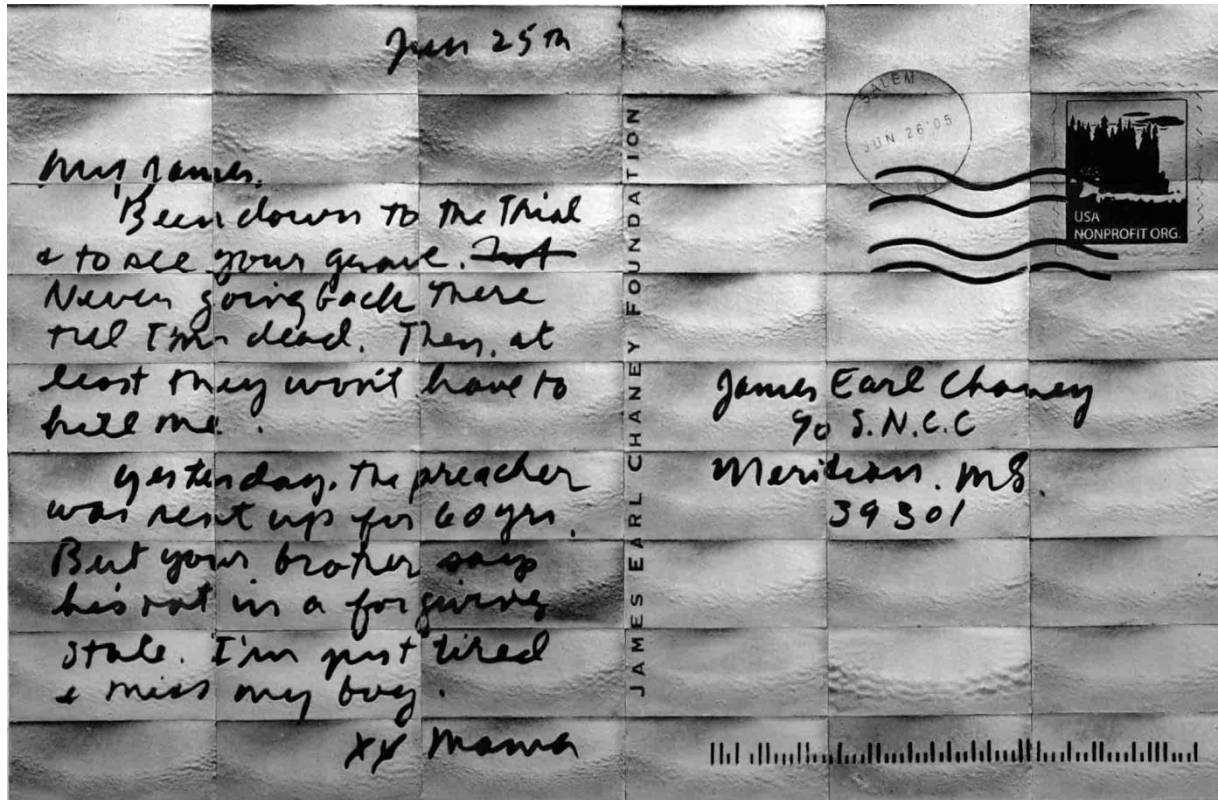 Jun 25th
My James.
Been down to the Trial
& to see your grave.
Never going back there
till I'm dead. Then, at
least they won't have to
kill me.
Yesterday, the preacher
was sent up for 60 yrs.
But your brother says
he's not in a forgiving
state. I'm just tired
& miss my boy.
xx Mama
JAMES EARL CHANEY FOUNDATION
SALEM
JUN 26 '05
USA
NONPROFIT ORG.
James Earl Chaney
c/o S.N.C.C
Meridian. MS.
39301